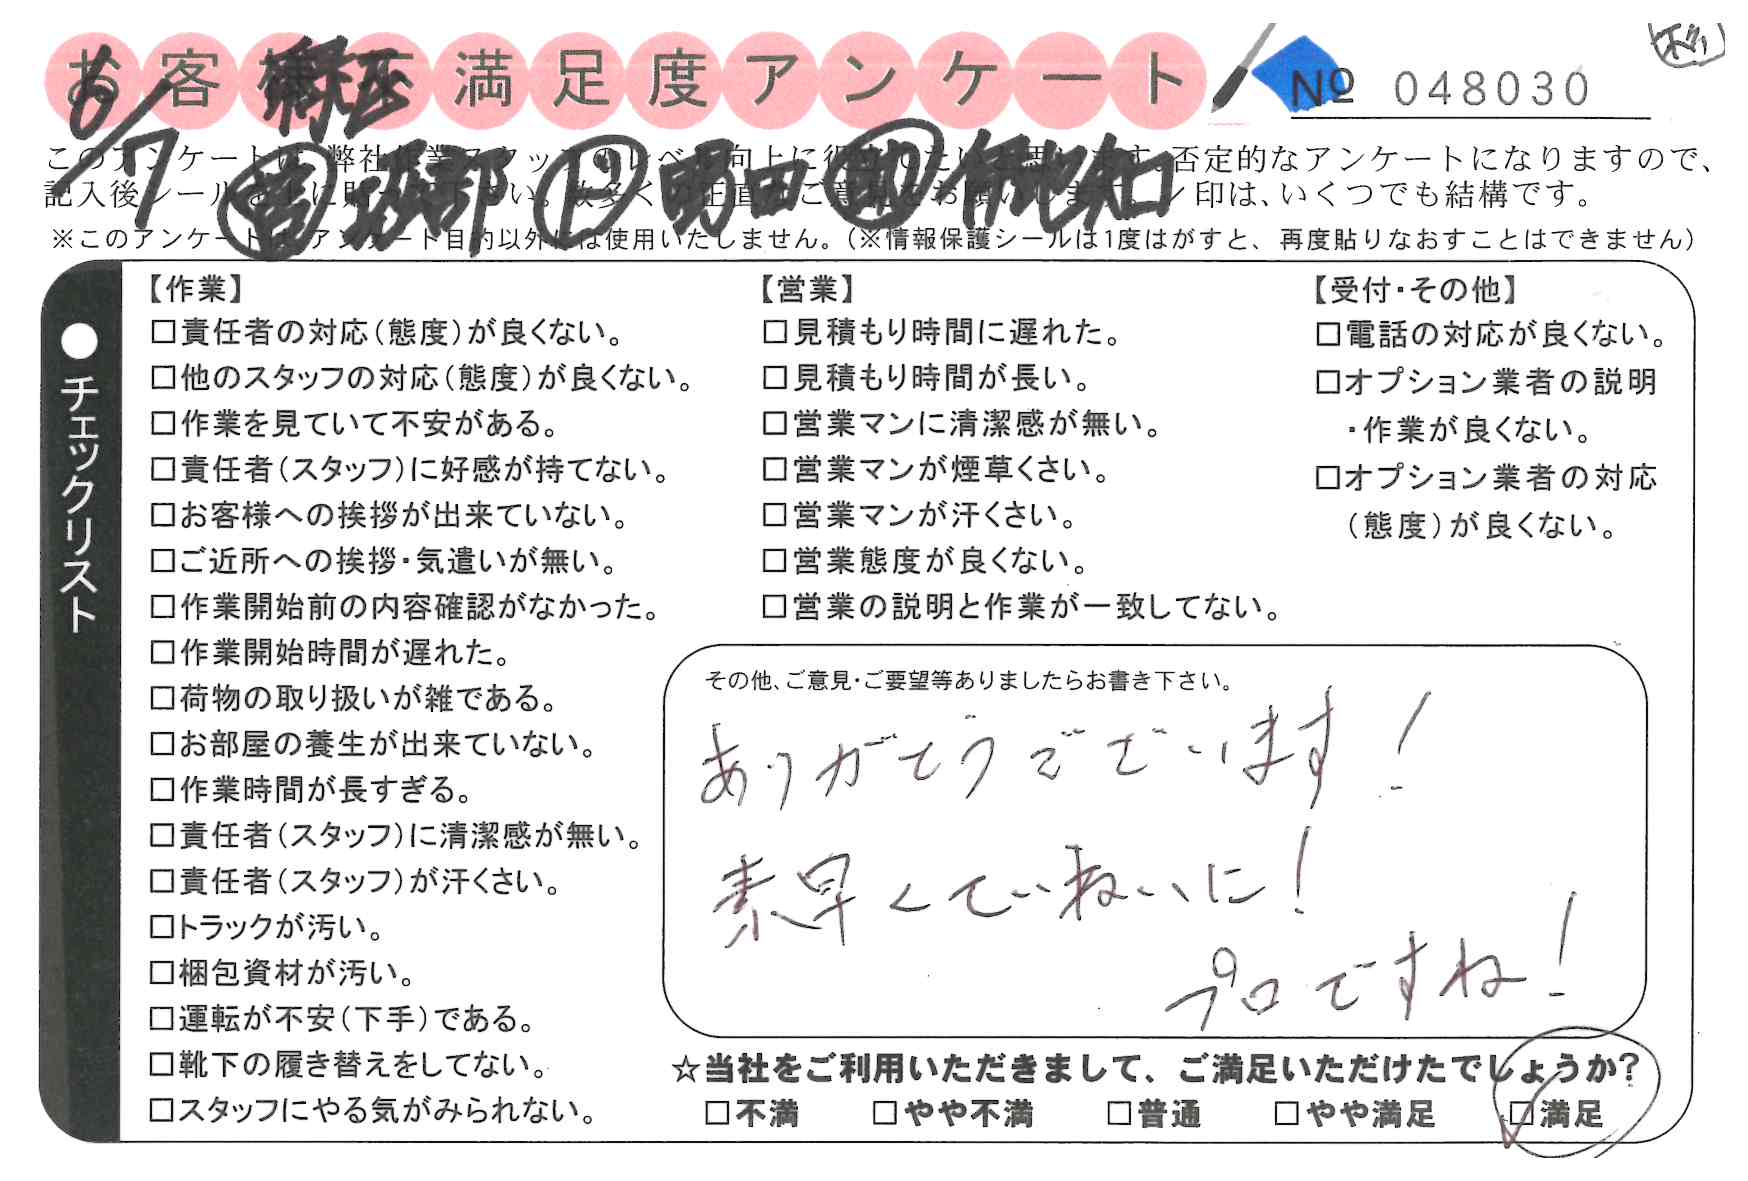 お客様満足度アンケート
№ 048030
6/7 埼玉
このアンケートは、弊社作業スタッフのレベル向上に役立てたいと思います。否定的なアンケートになりますので、
記入後シールを上に貼って下さい。数多くの正直なご意見をお願いします。✓印は、いくつでも結構です。
※このアンケートは、アンケート目的以外には使用いたしません。(※情報保護シールは1度はがすと、再度貼りなおすことはできません)
●チェックリスト
【作業】
□責任者の対応(態度)が良くない。
□他のスタッフの対応(態度)が良くない。
□作業を見ていて不安がある。
□責任者(スタッフ)に好感が持てない。
□お客様への挨拶が出来ていない。
□ご近所への挨拶・気遣いが無い。
□作業開始前の内容確認がなかった。
□作業開始時間が遅れた。
□荷物の取り扱いが雑である。
□お部屋の養生が出来ていない。
□作業時間が長すぎる。
□責任者(スタッフ)に清潔感が無い。
□責任者(スタッフ)が汗くさい。
□トラックが汚い。
□梱包資材が汚い。
□運転が不安(下手)である。
□靴下の履き替えをしてない。
□スタッフにやる気がみられない。
【営業】
□見積もり時間に遅れた。
□見積もり時間が長い。
□営業マンに清潔感が無い。
□営業マンが煙草くさい。
□営業マンが汗くさい。
□営業態度が良くない。
□営業の説明と作業が一致してない。
【受付・その他】
□電話の対応が良くない。
□オプション業者の説明
・作業が良くない。
□オプション業者の対応
(態度)が良くない。
その他、ご意見・ご要望等ありましたらお書き下さい。
ありがとうございます!
素早くていねいに!
プロですね!
☆当社をご利用いただきまして、ご満足いただけたでしょうか?
□不満 □やや不満 □普通 □やや満足 ☑満足